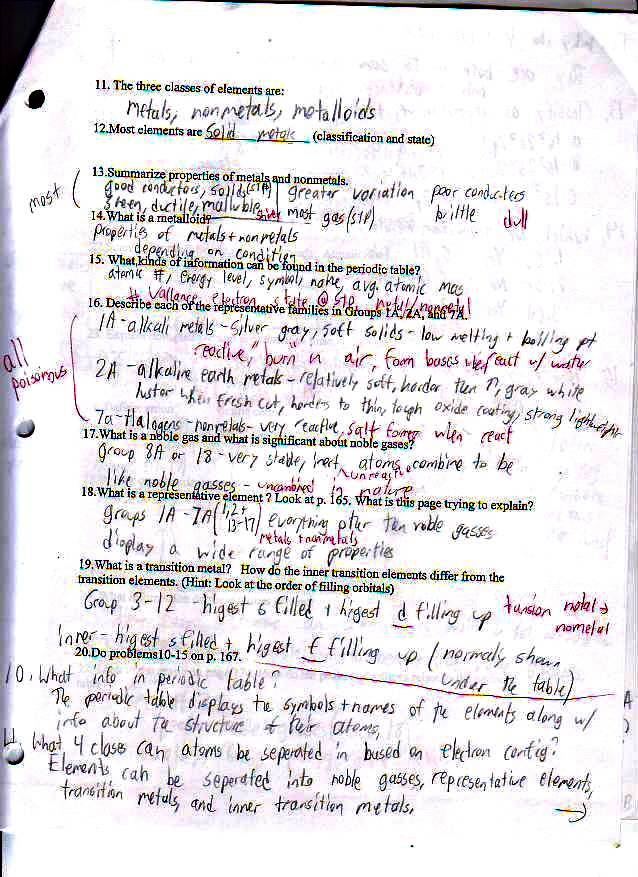 11. The three classes of elements are:
metals, nonmetals, metalloids
12.Most elements are solid metals (classification and state)
13.Summarize properties of metals and nonmetals.
most ( good conductors, solids (STP) | greater variation poor conducters
ductile, malluble, silver | most gas (STP) brittle dull
14.What is a metalloid?
properties of metals + nonmetals
depending on condition
15. What kinds of information can be found in the periodic table?
atomic #, energy level, symbol, name, avg. atomic mas
# vallance electron state @ STP metal/nonmetal
16. Describe each of the representative families in Groups 1A, 2A, and 7A.
all poisonous
1A - alkali metals - silver gray, soft solids - low melting + boiling pt
reactive, "burn" in air, form bases when react w/ water
2A - alkaline earth metals - relatively soft, harder then 1A, gray white
luster when fresh cut, hardens to thin, tough oxide coating, strong lightweight
7a - Halogens - nonmetals - very reactive, salt former when react
17.What is a noble gas and what is significant about noble gases?
group 8A or 18 - very stable, inert, atoms combine to be
unreactive
like noble gasses - uncombined in nature
18.What is a representative element ? Look at p. 165. What is this page trying to explain?
groups 1A - 7A (1,2 + 13-17) everything other than noble gasses
metals + nonmetals
display a wide range of properties
19.What is a transition metal? How do the inner transition elements differ from the
transition elements. (Hint: Look at the order of filling orbitals)
Group 3-12 - higest s filled + higest d filling up tansion metal → nometal
Inner - higest s filled + higest f filling up (normaly shown
under the table)
20.Do problems10-15 on p. 167.
10. What info in periodic table?
The periodic table displays the symbols + names of the elements along w/
info about the structure of their atoms.
11. What 4 clases can atoms be seperated in based on electron config?
Elements can be seperated into noble gasses, representative elements,
transition metals, and inner transition metals.
→